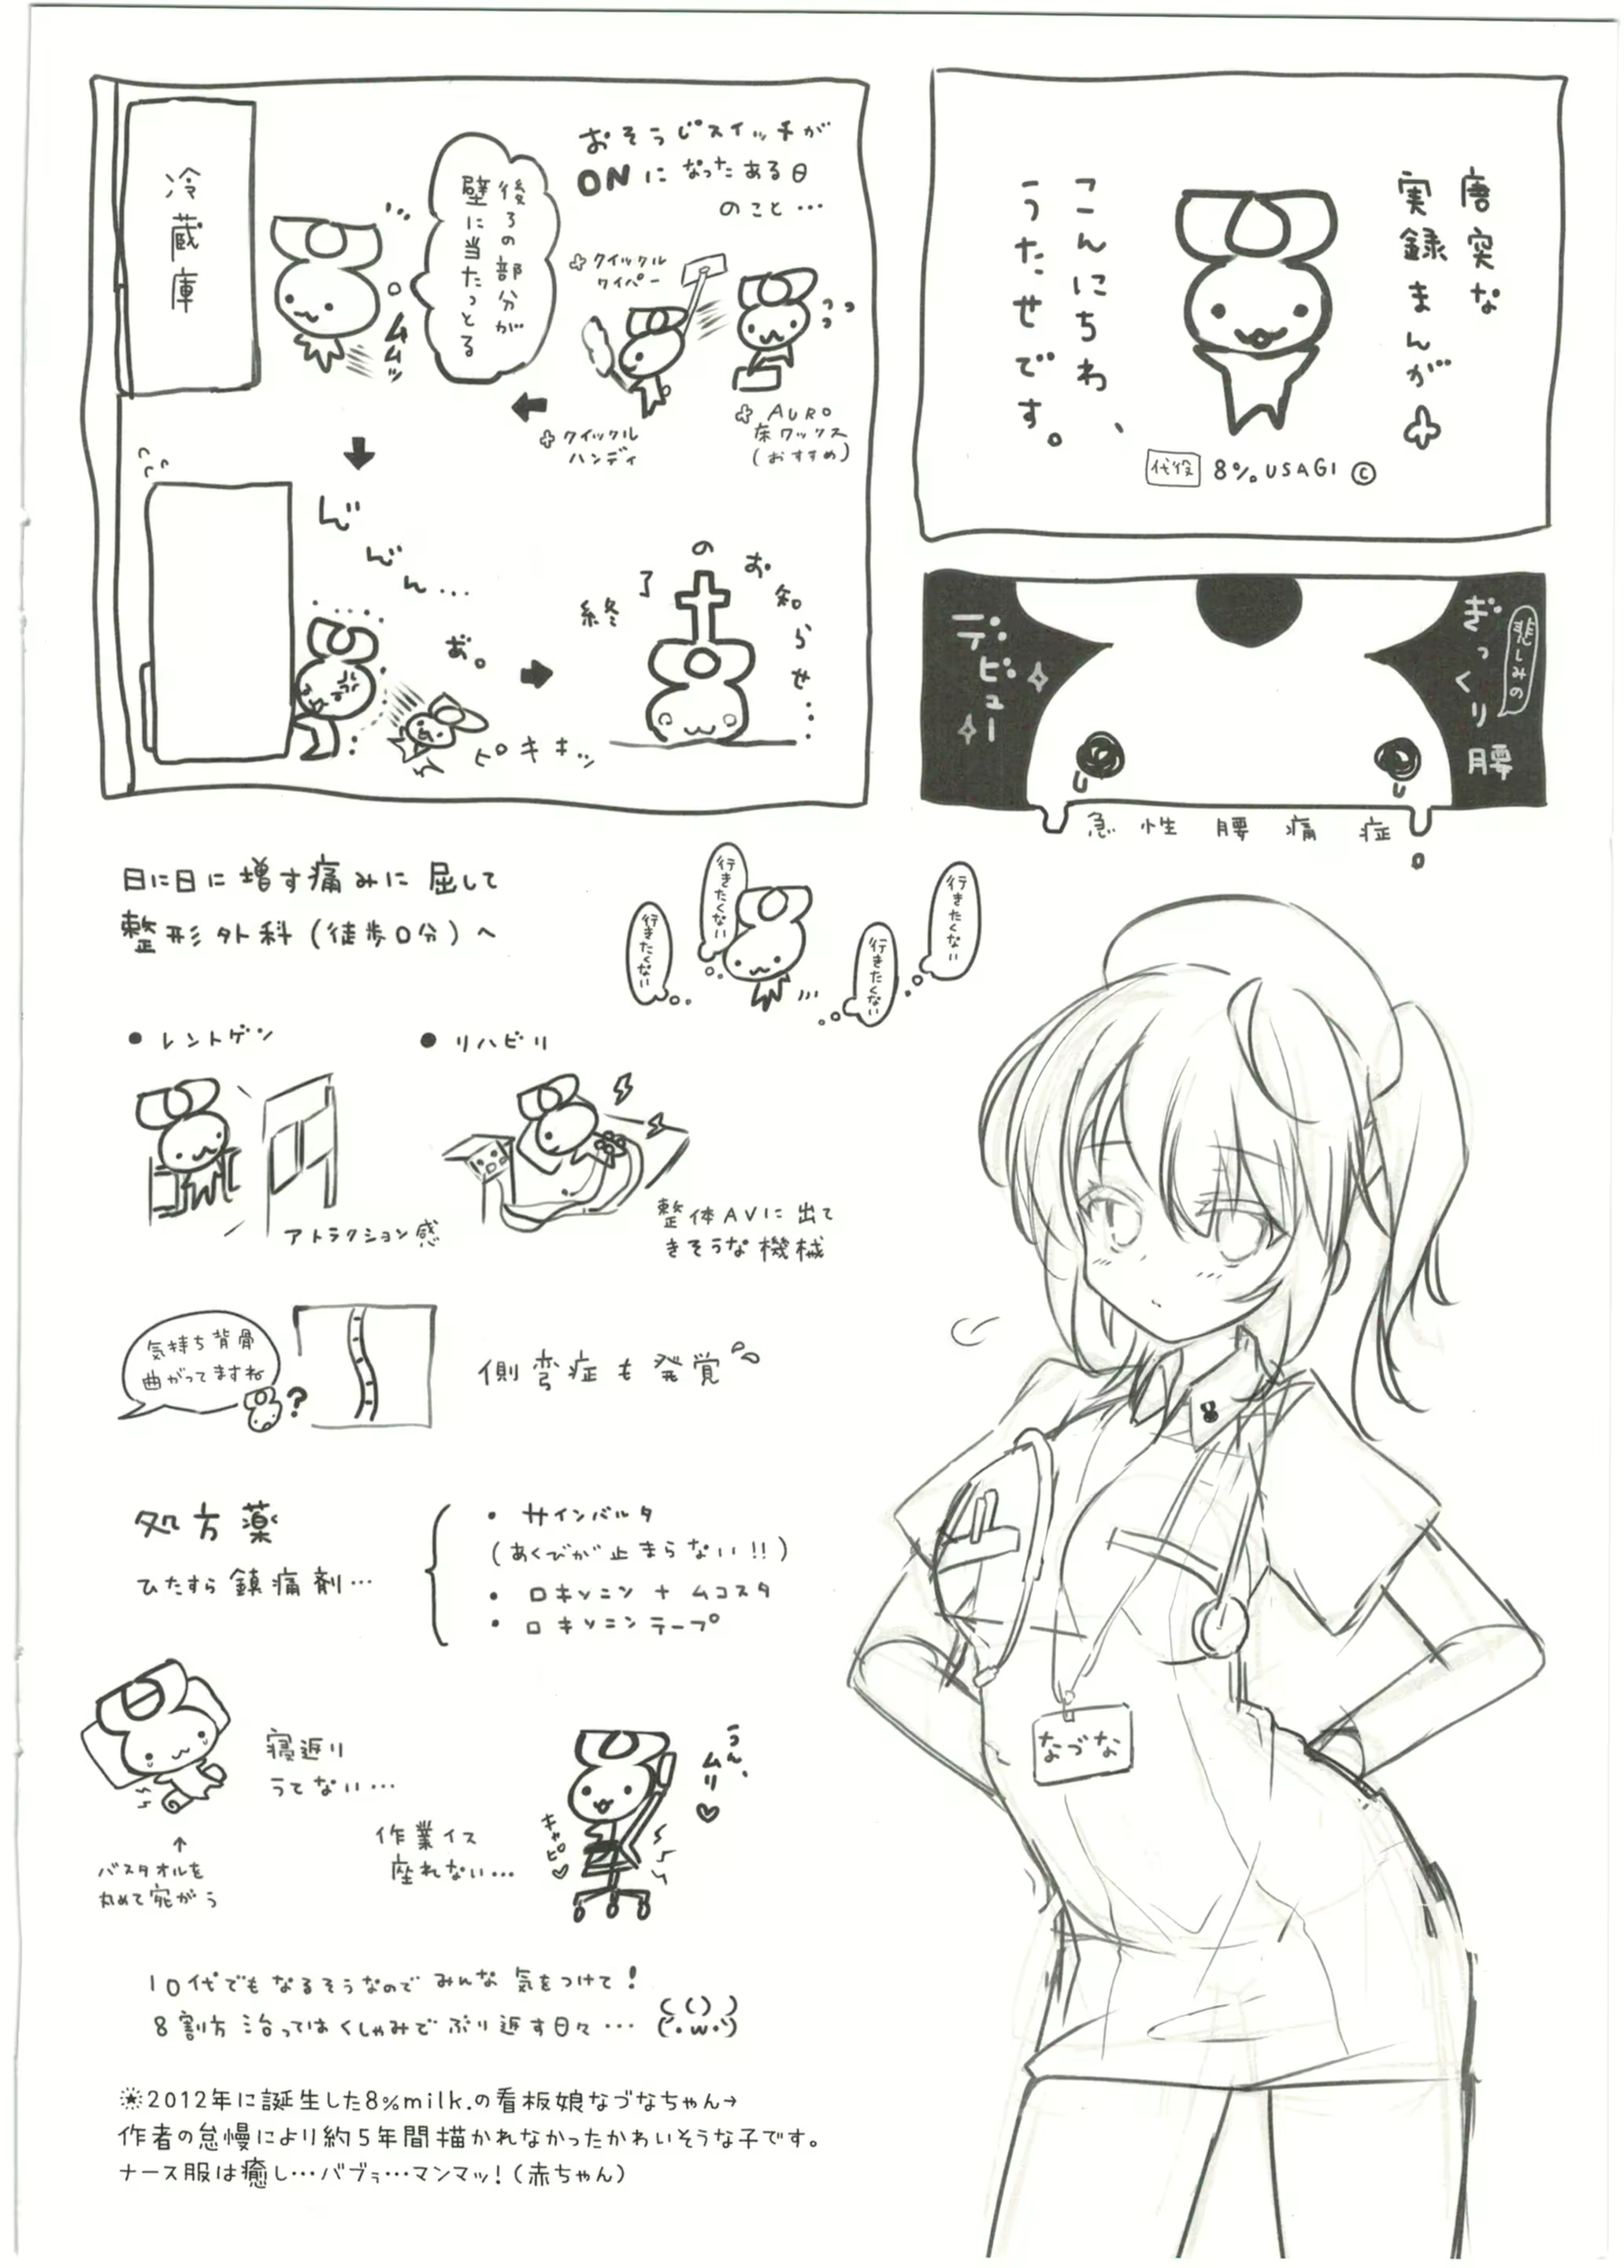 唐突な
実録まんが
こんにちわ、
うたせです。
代役 8% USAGI ©
悲しみの
ぎっくり腰
デビュー
急性腰痛症
おそうじスイッチが
ONになったある日
のこと…
クイックル
ワイパー
AURO
床ワックス
(おすすめ)
クイックル
ハンディ
後ろの部分が
壁に当たっとる
ムムッ
冷蔵庫
ん゛
ん゛
ん…
あ。
ピキキッ
終了のお知らせ…
日に日に増す痛みに屈して
整形外科(徒歩0分)へ
行きたくない
行きたくない
行きたくない
行きたくない
●レントゲン
アトラクション感
●リハビリ
整体AVに出て
きそうな機械
気持ち背骨
曲がってますね
?
側弯症も発覚
処方薬
ひたすら鎮痛剤…
・サインバルタ
(あくびが止まらない!!)
・ロキソニン+ムコスタ
・ロキソニンテープ
寝返り
うてない…
↑
バスタオルを
丸めて宛がう
作業イス
座れない…
キャピ♡
うん、
ムリ♡
10代でもなるそうなのでみんな気をつけて!
8割方治ってはくしゃみでぶり返す日々…
なづな
※2012年に誕生した8%milk.の看板娘なづなちゃん→
作者の怠慢により約5年間描かれなかったかわいそうな子です。
ナース服は癒し…バブゥ…マンマッ!(赤ちゃん)